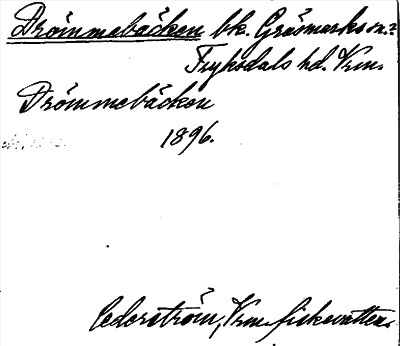 Drömmebäcken bk. Gräsmarks sn.?
Fryksdals hd. Vrm.
Drömmebäcken
1896.
Cederström, Vrm. fiskevatten.